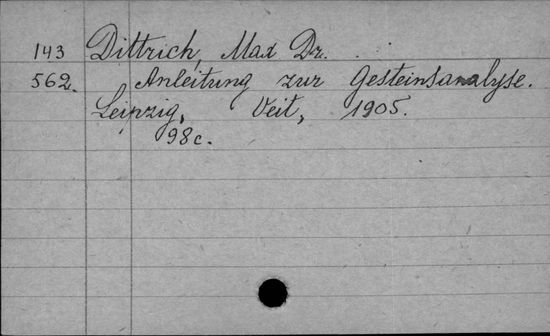 143 Dittrich, Max Dr.
562. Anleitung zur Gesteinsanalyse.
Leipzig, Veit, 1905.
98c.